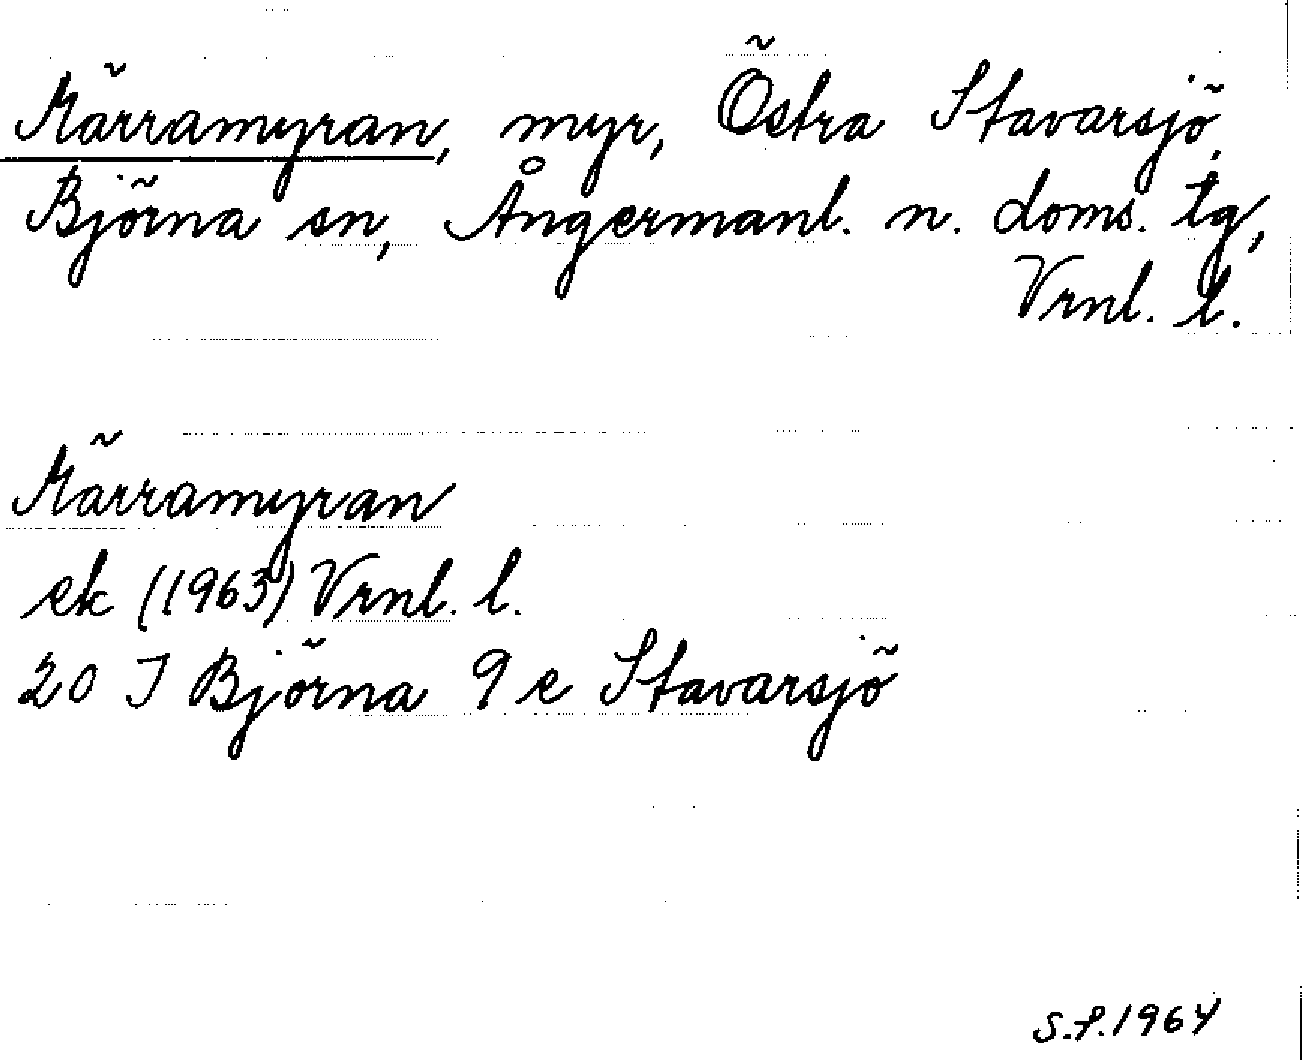 Märramyran, myr, Östra Stavarsjö,
Björna sn, Ångermanl. n. doms. tg,
Vrnl. l.
Märramyran
ek (1963) Vrnl. l.
20 I Björna 9 e Stavarsjö
S.f. 1964